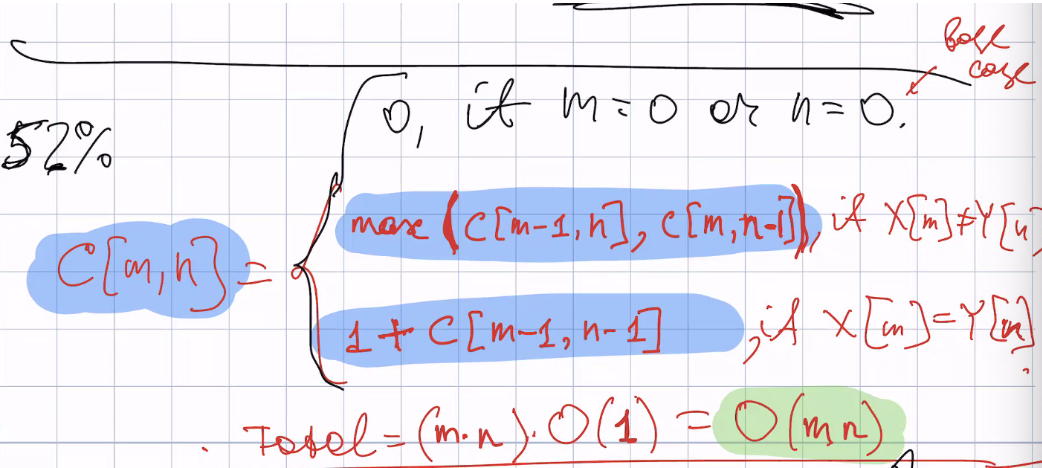 Base
case
0, if m=0 or n=0.
52%
max (C[m-1,n], C[m,n-1]), if X[m]≠Y[n]
C[m,n] =
1 + C[m-1, n-1] , if X[m]=Y[n]
Total = (m·n)·O(1) = O(mn)